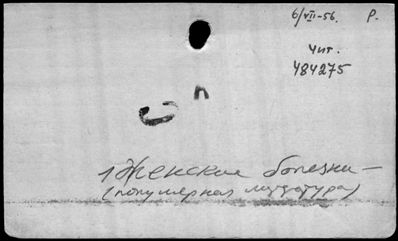 6/VII-56. Р.
Чит.
484275
п
1 Женские болезни —
(популярная литература)